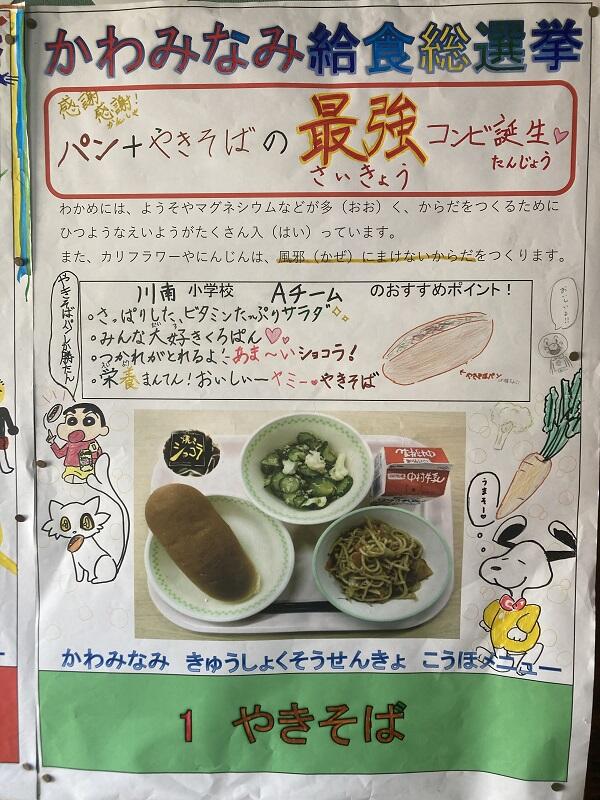 かわみなみ給食総選挙
感謝感謝!
かんしゃ
パン+やきそばの最強コンビ誕生
さいきょう
たんじょう
わかめには、ようそやマグネシウムなどが多(おお)く、からだをつくるために
ひつようなえいようがたくさん入(はい)っています。
また、カリフラワーやにんじんは、風邪(かぜ)にまけないからだをつくります。
川南小学校 Aチームのおすすめポイント!
・さっぱりした、ビタミンたっぷりサラダ
・みんな大好きくろぱん
・つかれがとれるよ!あま〜いショコラ!
・栄養まんてん!おいしいーヤミーやきそば
やきそばパンしか勝たん
←やきそばパン
おいしいね!!
うまそー
焼きショコラ
かわみなみ きゅうしょくそうせんきょ こうほメニュー
1 やきそば